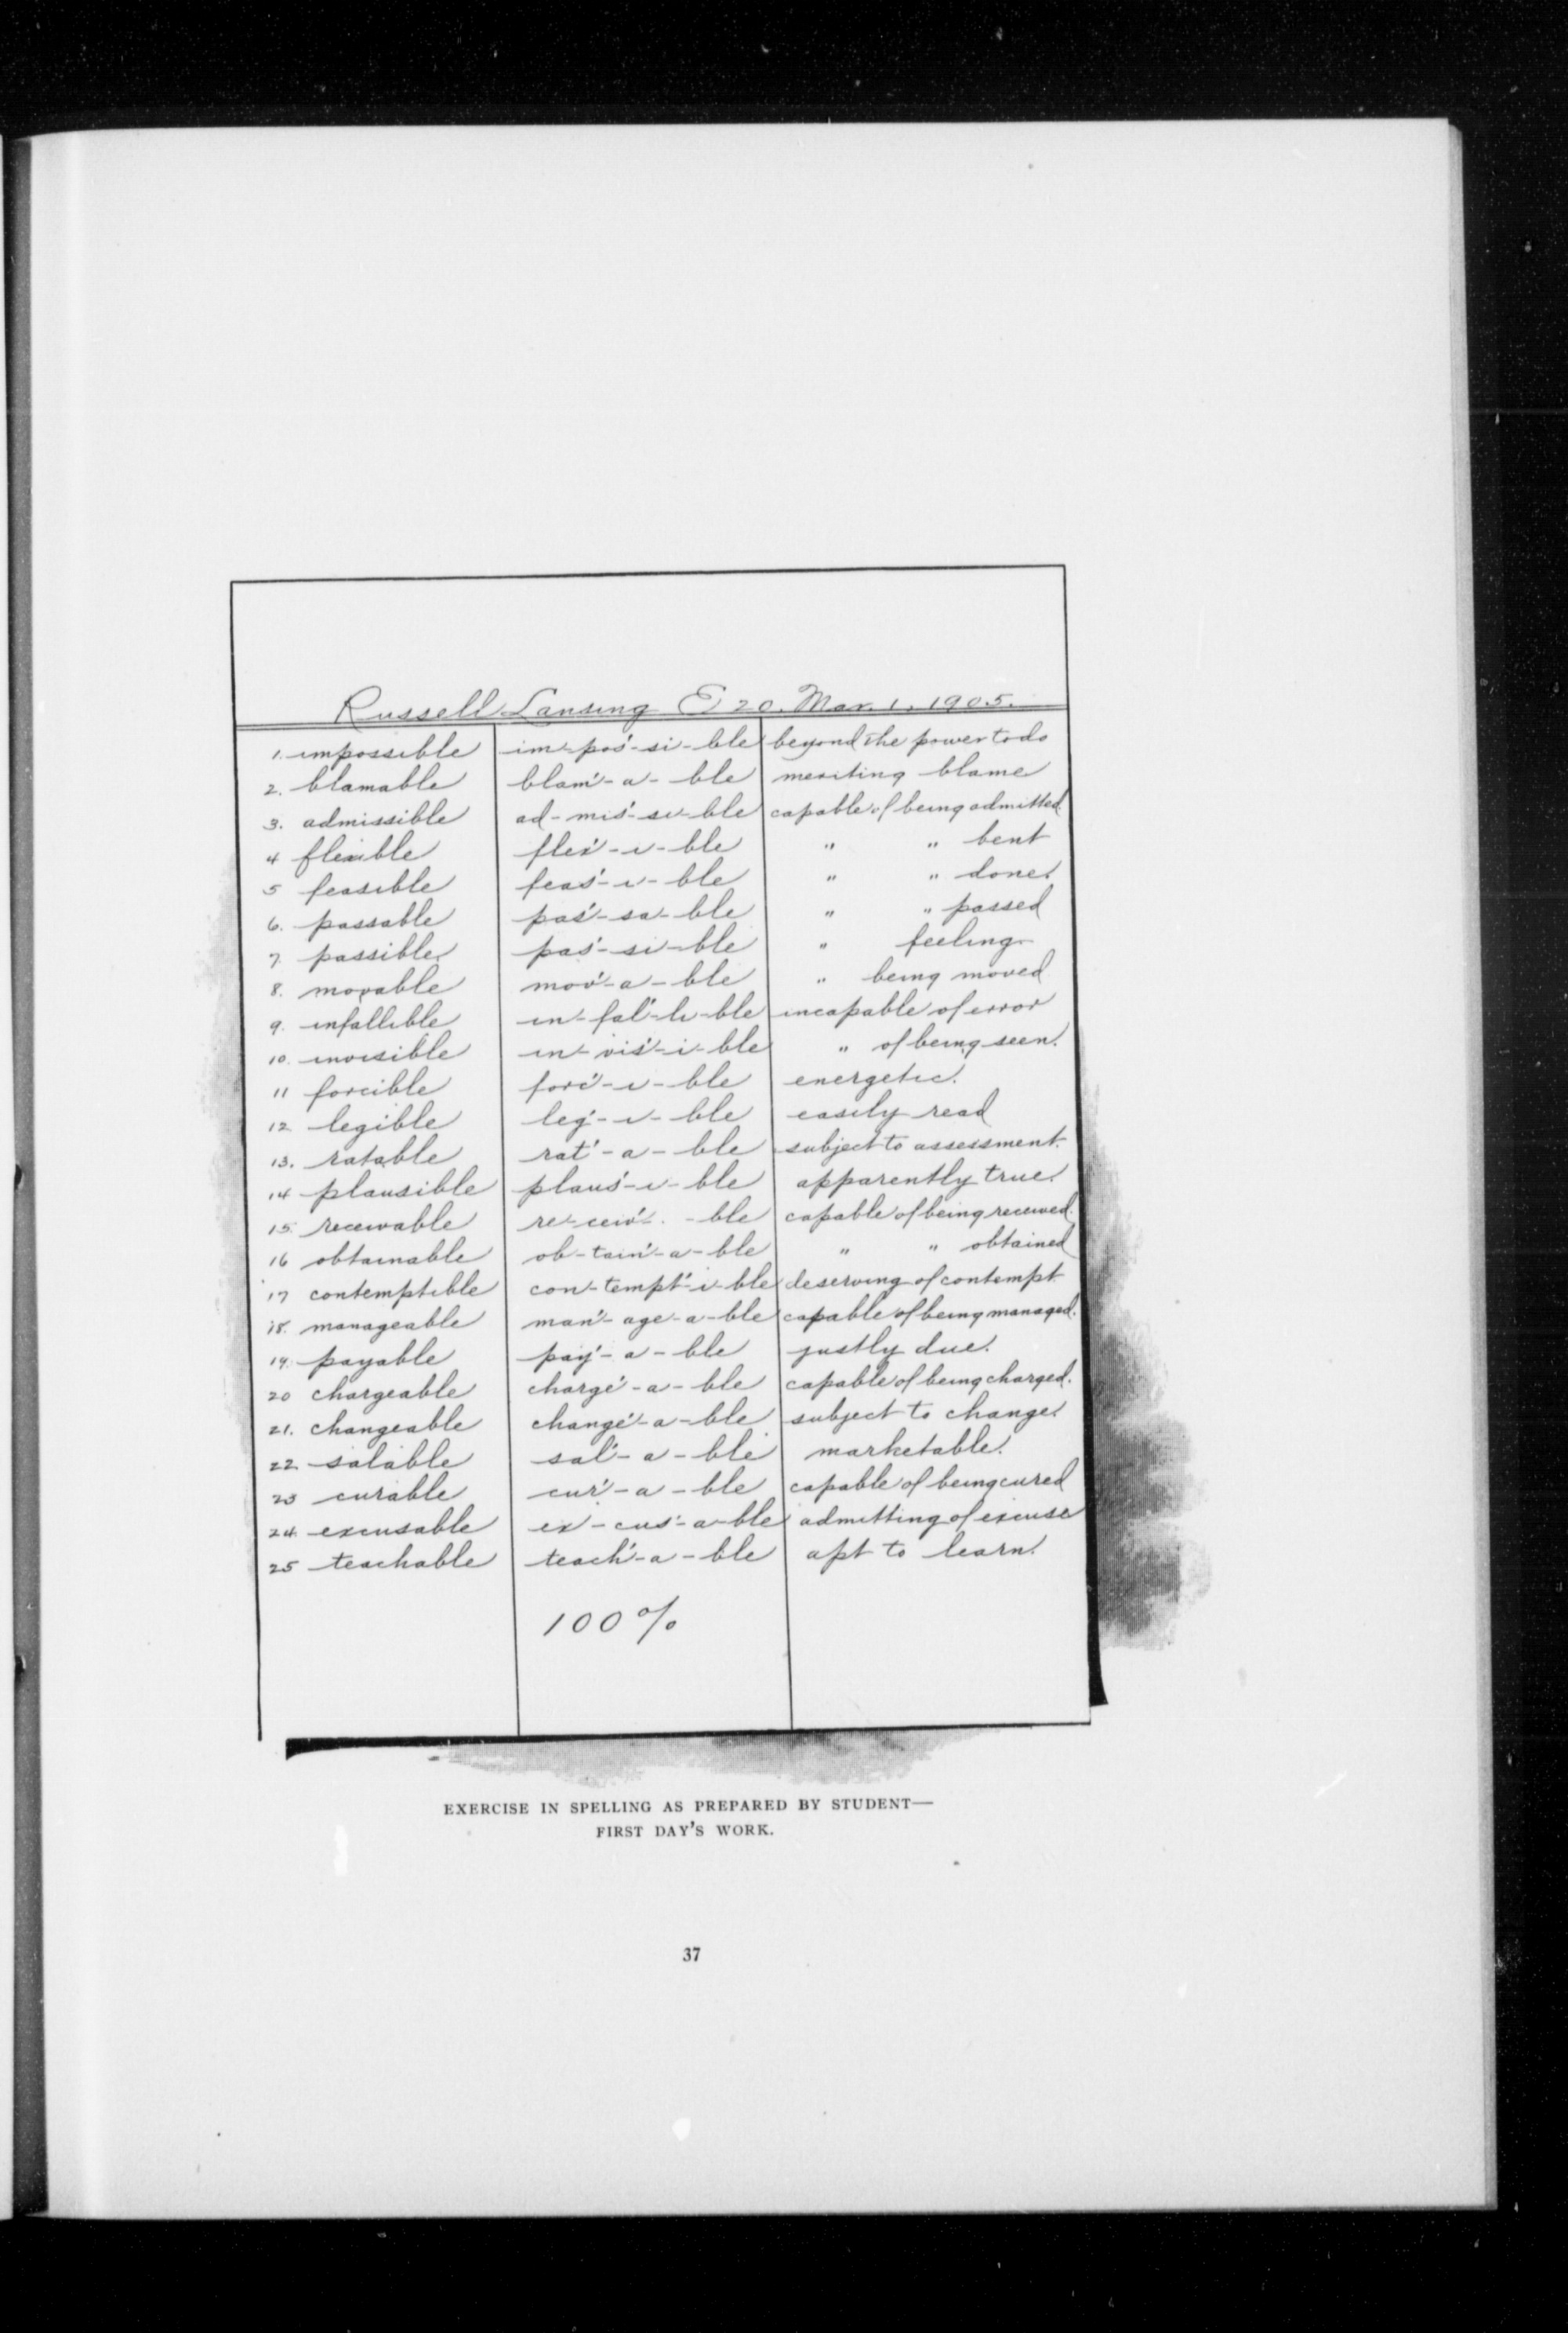 Russell Lansing E 20. Mar. 1. 1905.
1. impossible im-pos'-si-ble beyond the power to do
2. blamable blam'-a-ble meriting blame
3. admissible ad-mis'-si-ble capable of being admitted
4 flexible flex'-i-ble " " bent
5 feasible feas'-i-ble " " done.
6. passable pas'-sa-ble " " passed
7. passible pas'-si-ble " feeling
8. movable mov'-a-ble " being moved
9. infallible in-fal'-li-ble incapable of error
10. invisible in-vis'-i-ble " of being seen.
11 forcible forc'-i-ble energetic.
12 legible leg'-i-ble easily read
13. ratable rat'-a-ble subject to assessment.
14 plausible plaus'-i-ble apparently true.
15. receivable re-ceiv'- . -ble capable of being received.
16 obtainable ob-tain'-a-ble " " obtained
17 contemptible con-tempt'-i-ble deserving of contempt
18. manageable man'-age-a-ble capable of being managed.
19. payable pay'-a-ble justly due.
20 chargeable charge'-a-ble capable of being charged.
21. changeable change'-a-ble subject to change.
22 salable sal'-a-ble marketable.
23 curable cur'-a-ble capable of being cured
24. excusable ex-cus'-a-ble admitting of excuse
25 teachable teach'-a-ble apt to learn.
100%
EXERCISE IN SPELLING AS PREPARED BY STUDENT—
FIRST DAY'S WORK.
37